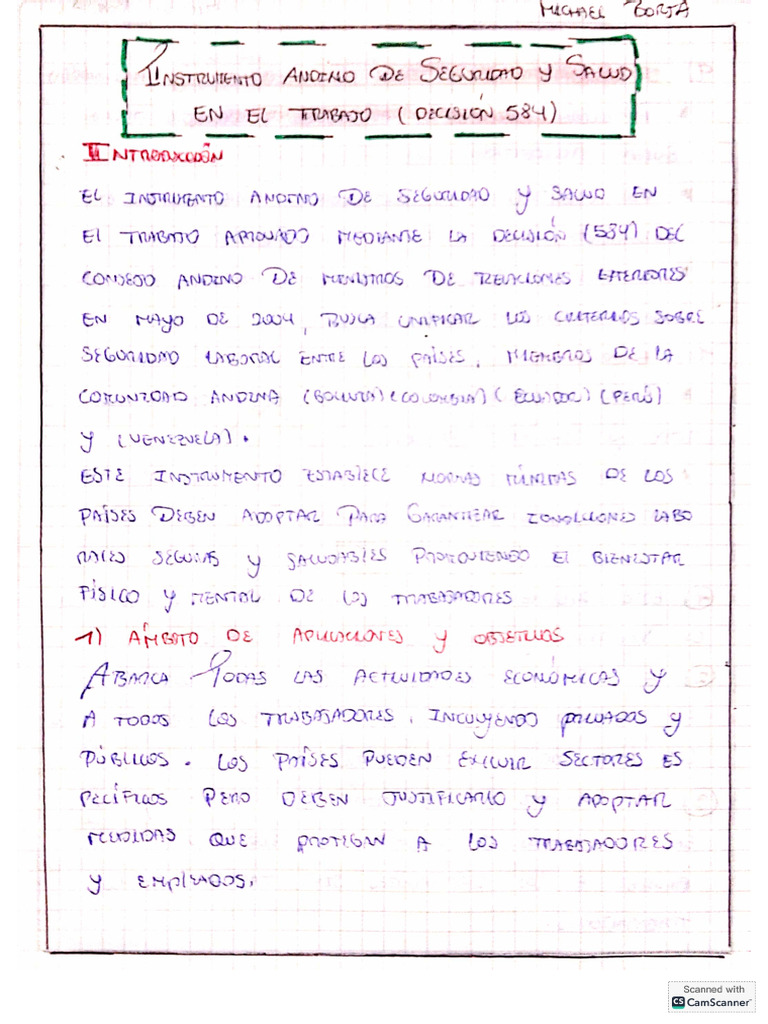 MICHAEL BORJA
INSTRUMENTO ANDINO DE SEGURIDAD Y SALUD
EN EL TRABAJO (DECISIÓN 584)
INTRODUCCIÓN
EL INSTRUMENTO ANDINO DE SEGURIDAD Y SALUD EN
EL TRABAJO APROVADO MEDIANTE LA DECISIÓN (584) DEL
CONSEJO ANDINO DE MINISTROS DE RELACIONES EXTERIORES
EN MAYO DE 2004, BUSCA UNIFICAR LOS CRITERIOS SOBRE
SEGURIDAD LABORAL ENTRE LOS PAÍSES. MIEMBROS DE LA
COMUNIDAD ANDINA (BOLIVIA) (COLOMBIA) (ECUADOR) (PERÚ)
Y (VENEZUELA).
ESTE INSTRUMENTO ESTABLECE NORMAS MÍNIMAS DE LOS
PAÍSES DEBEN ADOPTAR PARA GARANTIZAR CONDICIONES LABO
RALES SEGURAS Y SALUDABLES PROMOVIENDO EL BIENESTAR
FÍSICO Y MENTAL DE LOS TRABAJADORES
1) ÁMBITO DE APLICACIONES Y OBJETIVOS
ABARCA TODAS LAS ACTIVIDADES ECONÓMICAS Y
A TODOS LOS TRABAJADORES, INCLUYENDO PRIVADOS Y
PÚBLICOS. LOS PAÍSES PUEDEN EXCLUIR SECTORES ES
PECÍFICOS PERO DEBEN JUSTIFICARLO Y ADOPTAR
MEDIDAS QUE PROTEGAN A LOS TRABAJADORES
Y EMPLEADOS.
Scanned with
CS CamScanner